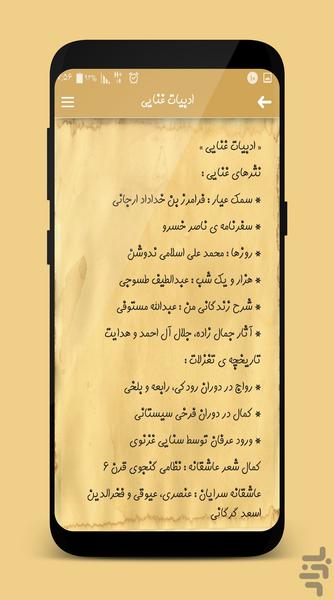 ۹۳%
ادبیات غنایی
« ادبیات غنایی »
نثرهای غنایی :
* سمک عیار : فرامرز بن خداداد ارجانی
* سفرنامه ی ناصر خسرو
* روزها : محمد علی اسلامی ندوشن
* هزار و یک شب : عبدالطیف طسوجی
* شرح زندگانی من : عبدالله مستوفی
* آثار جمال زاده، جلال آل احمد و هدایت
تاریخچه ی تغزلات :
* رواج در دوران رودکی، رابعه و بلخی
* کمال در دوران فرخی سیستانی
* ورود عرفان توسط سنایی غزنوی
کمال شعر عاشقانه : نظامی گنجوی قرن ۶
عاشقانه سرایان : عنصری، عیوقی و فخرالدین
اسعد گرگانی
بازار